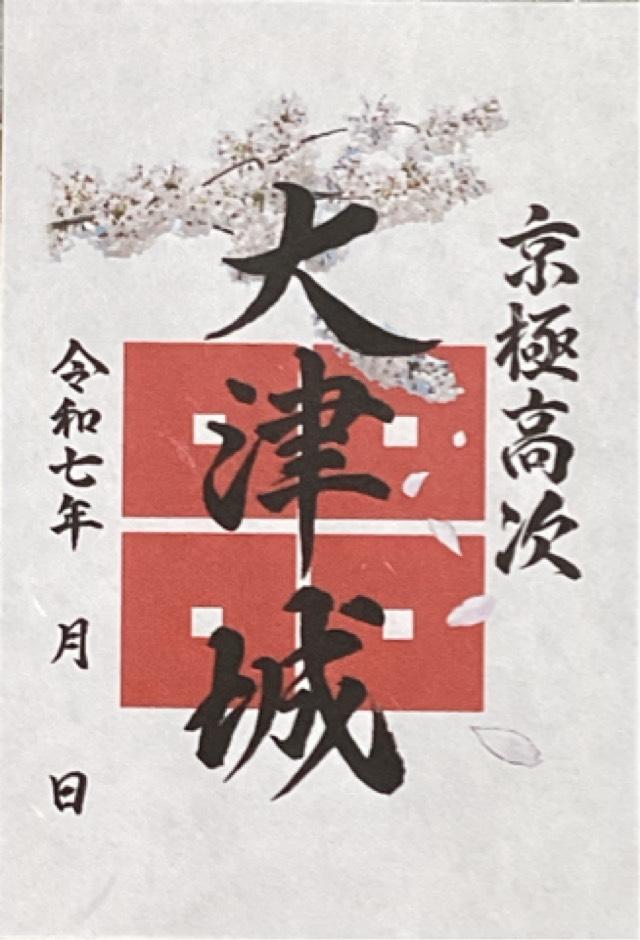 京極高次
大津城
令和七年 月 日